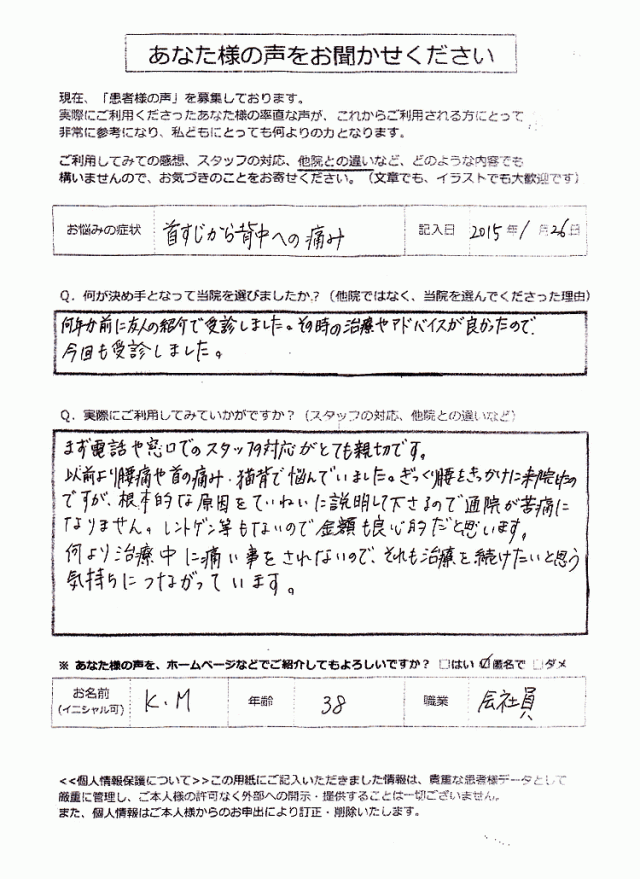 あなた様の声をお聞かせください
現在、「患者様の声」を募集しております。
実際にご利用くださったあなた様の率直な声が、これからご利用される方にとって
非常に参考になり、私どもにとっても何よりの力となります。
ご利用してみての感想、スタッフの対応、他院との違いなど、どのような内容でも
構いませんので、お気づきのことをお寄せください。（文章でも、イラストでも大歓迎です）
お悩みの症状 首すじから背中への痛み 記入日 2015年1月26日
Q．何が決め手となって当院を選びましたか？（他院ではなく、当院を選んでくださった理由）
何年か前に友人の紹介で受診しました。その時の治療やアドバイスが良かったので、
今回も受診しました。
Q．実際にご利用してみていかがですか？（スタッフの対応、他院との違いなど）
まず電話や窓口でのスタッフの対応がとても親切です。
以前より腰痛や首の痛み・猫背で悩んでいました。ぎっくり腰をきっかけに来院したの
ですが、根本的な原因をていねいに説明して下さるので通院が苦痛に
なりません。レントゲン等もないので金額も良心的だと思います。
何より治療中に痛い事をされないので、それも治療を続けたいと思う
気持ちにつながっています。
※ あなた様の声を、ホームページなどでご紹介してもよろしいですか？ □はい ☑匿名で □ダメ
お名前 K.M 年齢 38 職業 会社員
（イニシャル可）
<<個人情報保護について>>この用紙にご記入いただきました情報は、貴重な患者様データとして
厳重に管理し、ご本人様の許可なく外部への開示・提供することは一切ございません。
また、個人情報はご本人様からのお申出により訂正・削除いたします。